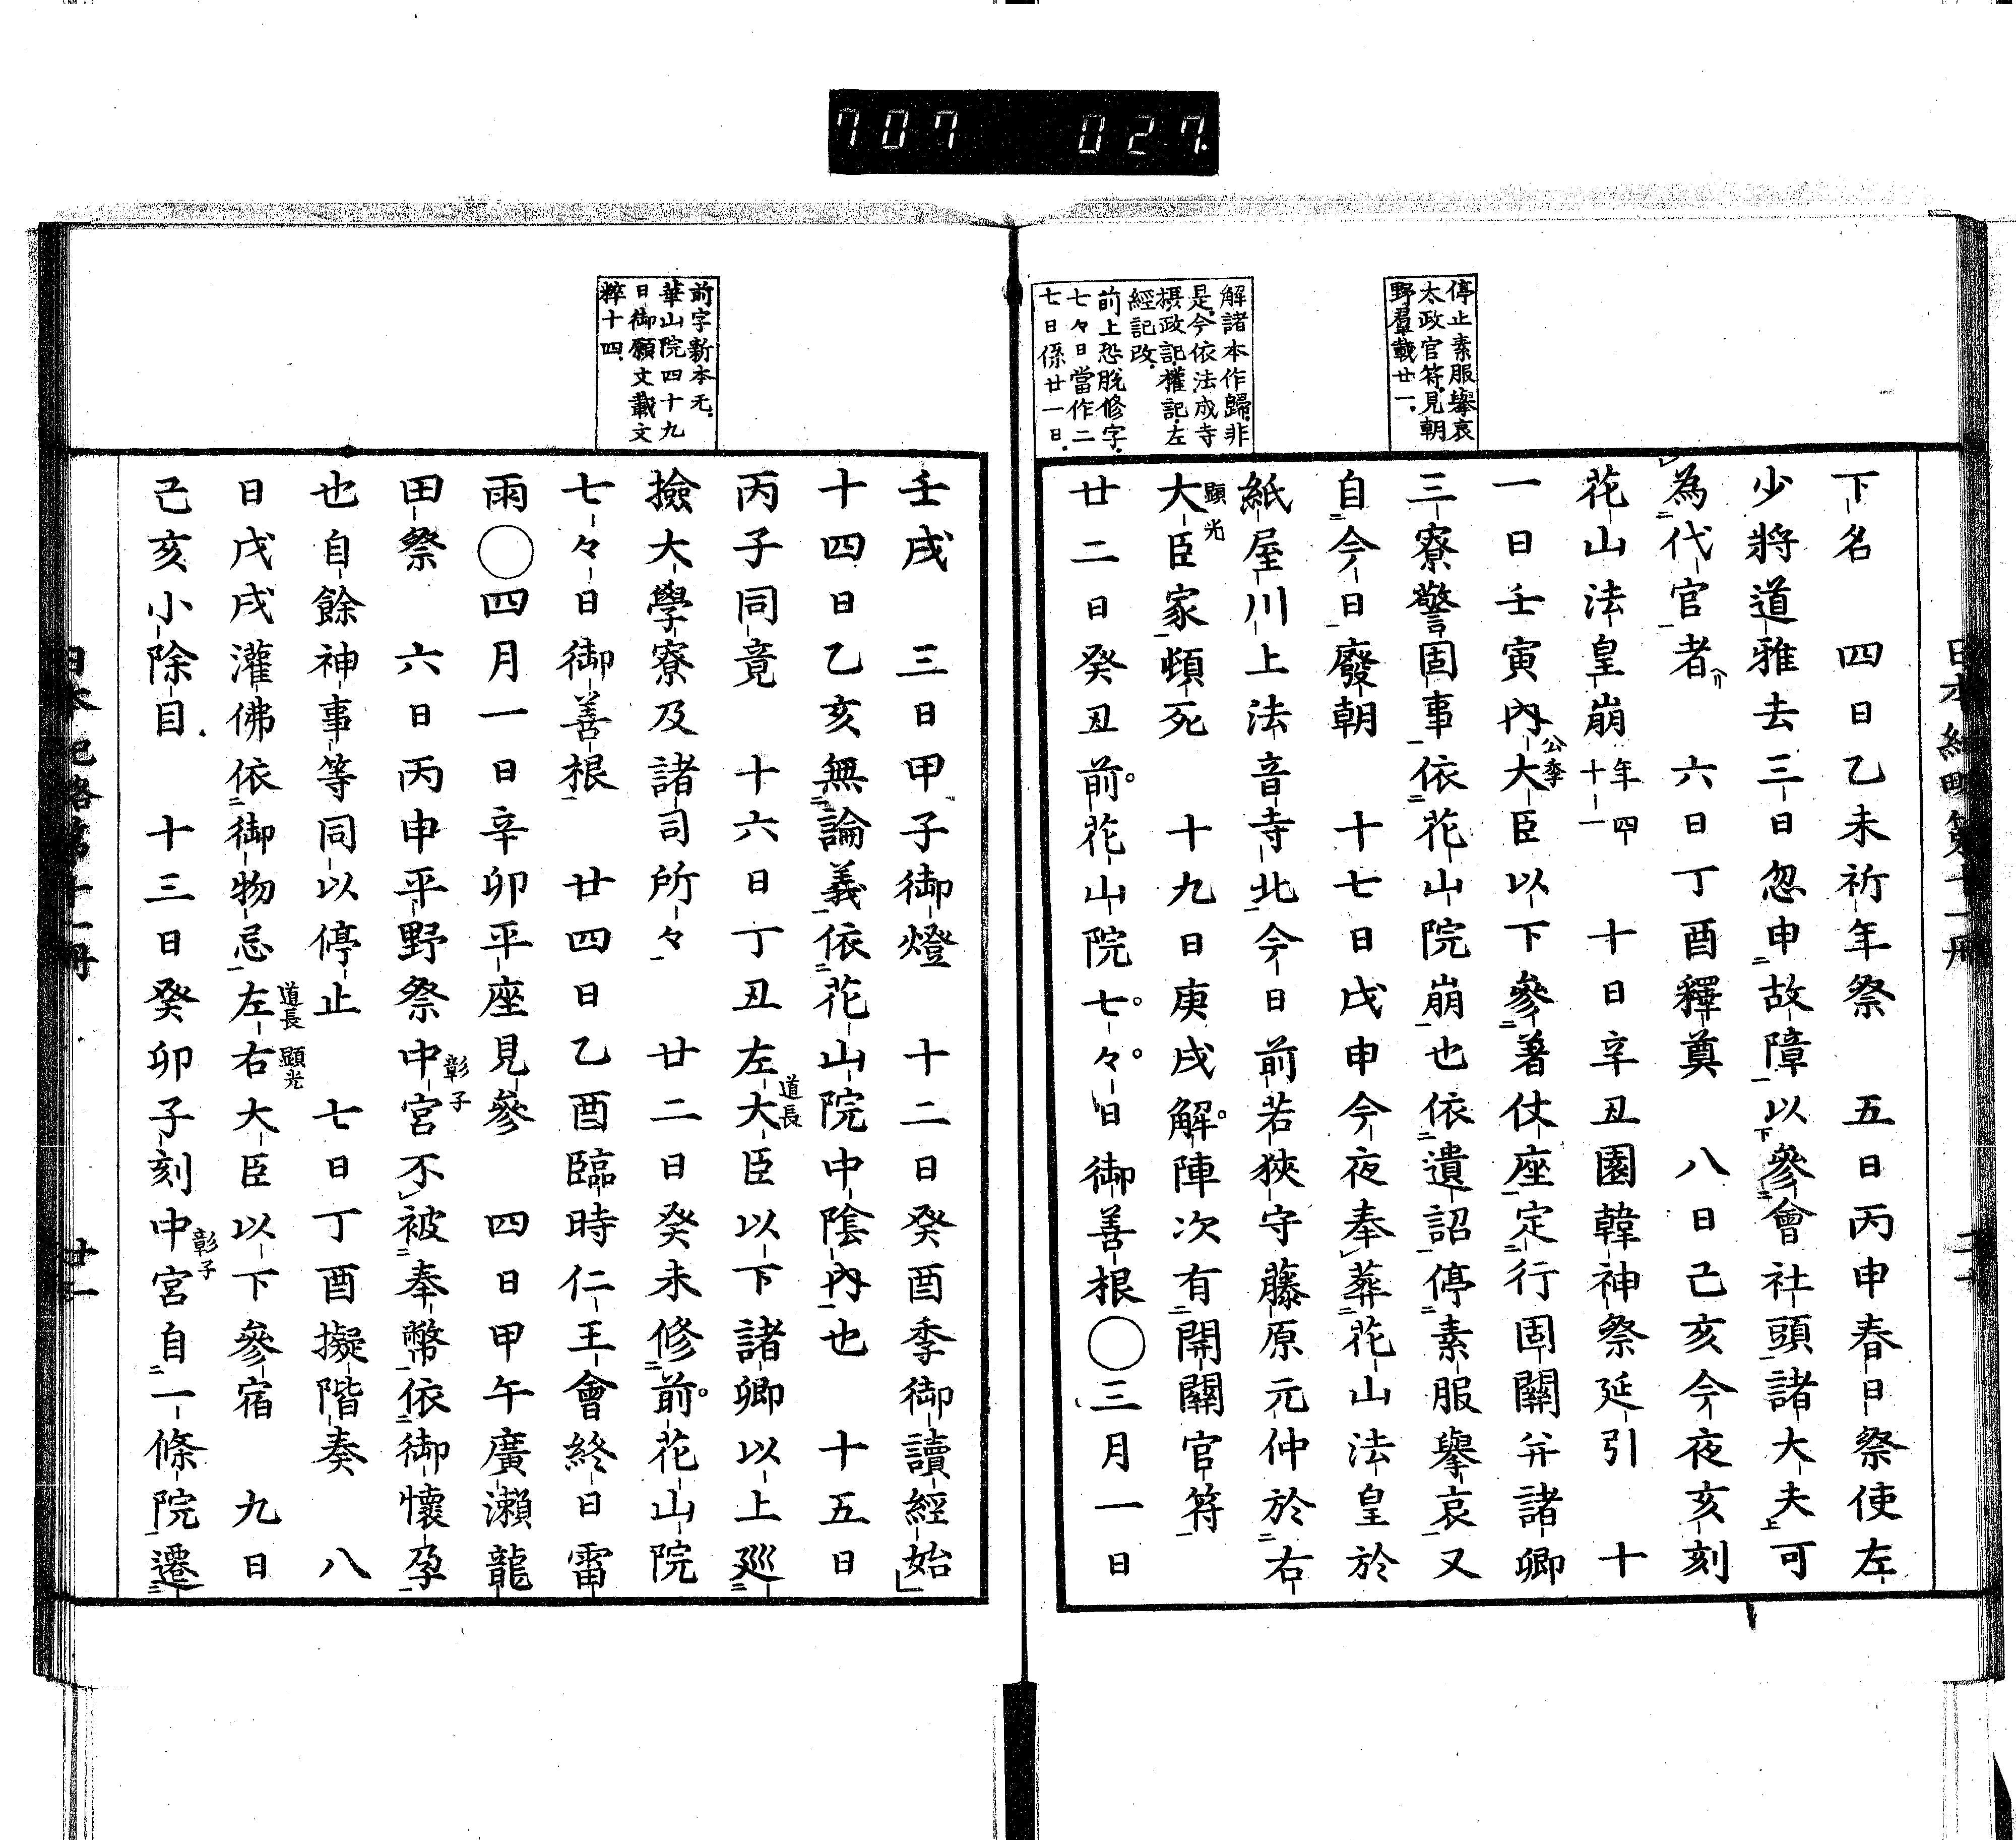 707 027
停止素服擧哀
太政官符見朝
野羣載廿一
解諸本作歸非
是今依法成寺
摂政記權記左
經記改
前上恐脫修字
七々日當作二
七日係廿一日
下名　四日乙未祈年祭　五日丙申春日祭使左
少將道雅去三日忽申故障以參會社頭諸大夫可
為代官者　六日丁酉釋奠　八日己亥今夜亥刻
花山法皇崩年四十一　十日辛丑園韓神祭延引　十
一日壬寅內大臣公季以下參著仗座定行固關并諸卿
三寮警固事依花山院崩也依遺詔停素服擧哀又
自今日廢朝　十七日戊申今夜奉葬花山法皇於
紙屋川上法音寺北今日前若狹守藤原元仲於右
大臣顯光家頓死　十九日庚戌解陣次有開關官符
廿二日癸丑前花山院七々日御善根〇三月一日
前字新本无
華山院四十九
日御願文載文
粹十四
壬戌　三日甲子御燈　十二日癸酉季御讀經始
十四日乙亥無論義依花山院中陰內也　十五日
丙子同竟　十六日丁丑左大臣道長以下諸卿以上巡
撿大學寮及諸司所々　廿二日癸未修前花山院
七々日御善根　廿四日乙酉臨時仁王會終日雷
雨〇四月一日辛卯平座見參　四日甲午廣瀨龍
田祭　六日丙申平野祭中宮彰子不被奉幣依御懷孕
也自餘神事等同以停止　七日丁酉擬階奏　八
日戊戌灌佛依御物忌左道長右顯光大臣以下參宿　九日
己亥小除目　十三日癸卯子刻中宮彰子自一條院遷